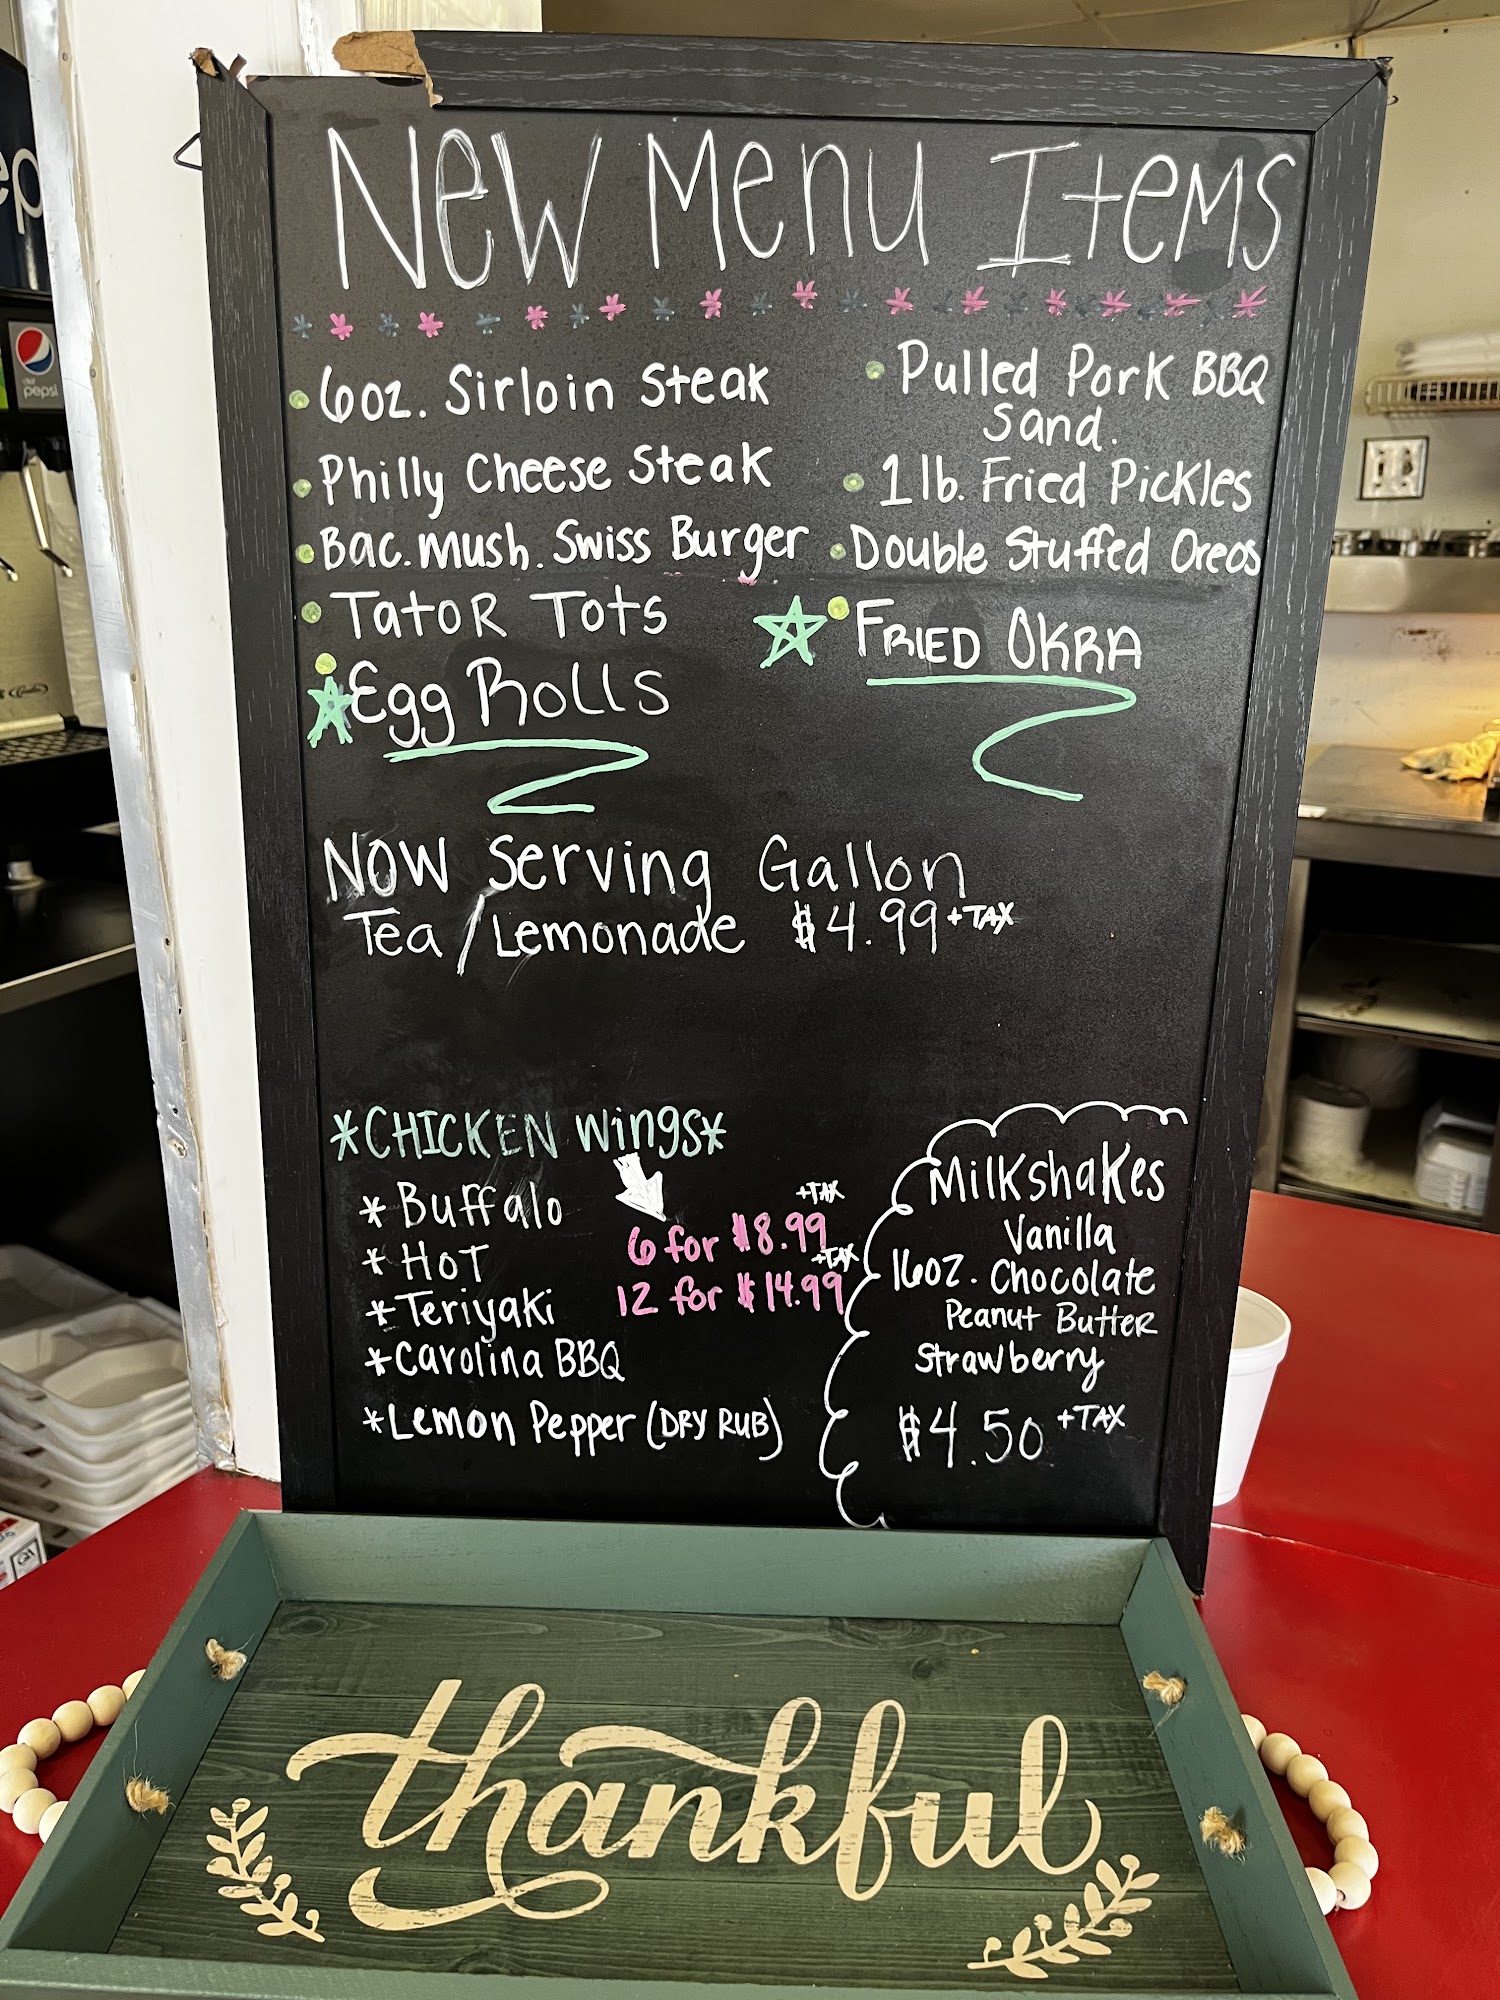 New Menu Items
6oz. Sirloin Steak
Philly Cheese Steak
Bac. Mush. Swiss Burger
Tator Tots
Egg Rolls
Pulled Pork BBQ
Sand.
1 lb. Fried Pickles
Double Stuffed Oreos
Fried Okra
Now Serving Gallon
Tea / Lemonade $4.99 + TAX
*CHICKEN Wings*
* Buffalo
* Hot
* Teriyaki
* Carolina BBQ
* Lemon Pepper (DRY RUB)
+TAX
6 for $8.99
+TAX
12 for $14.99
Milkshakes
Vanilla
16oz. Chocolate
Peanut Butter
Strawberry
$4.50 +TAX
thankful
pepsi